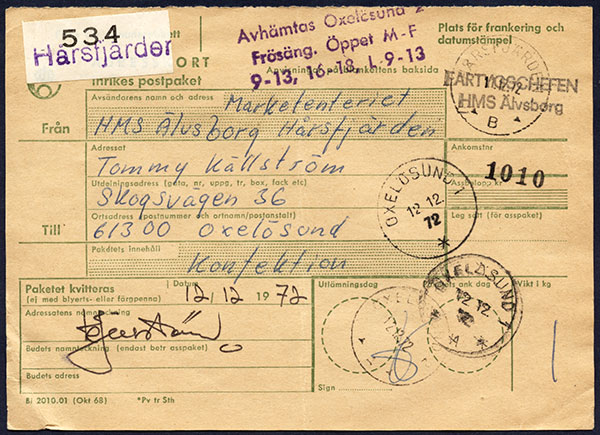 534
Hårsfjärden
Avhämtas Oxelösund 2
Frösäng. Öppet M-F
9-13, 16-18, L 9-13
Plats för frankering och
datumstämpel
ORT
Inrikes postpaket
B
FARTYGSCHEFEN
HMS Älvsborg
Från
Avsändarens namn och adress
Marketenteriet
HMS Älvsborg Hårsfjärden
Adressat
Tommy Källström
Ankomstnr
1010
Utdelningsadress (gata, nr, uppg, tr, box, fack etc)
Assbelopp kr
Skogsvägen 36
OXELÖSUND
12 12.
72
Leg satt (för asspaket)
Till
Ortsadress (postnummer och ortnamn/postanstalt)
61300 Oxelösund
Paketets innehåll
Konfektion
Paketet kvitteras
(ej med blyerts- eller färgpenna)
Datum
12/12 1972
Utlämningsdag
ank dag
Vikt i kg
OXELÖSUND 1
12 12
72
Adressatens namnteckning
Budets namnteckning (endast betr asspaket)
Budets adress
Sign
1
Bl 2010.01 (Okt 68)
*Pv tr Sth